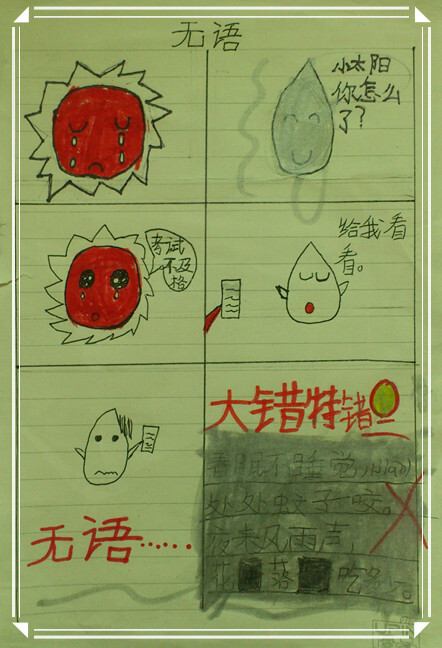 无语
小太阳
你怎么
了?
考试
不及
格
给我看
看。
无语……
大错特错
春眠不睡觉,
处处蚊子咬。
夜来风雨声,
花落吃